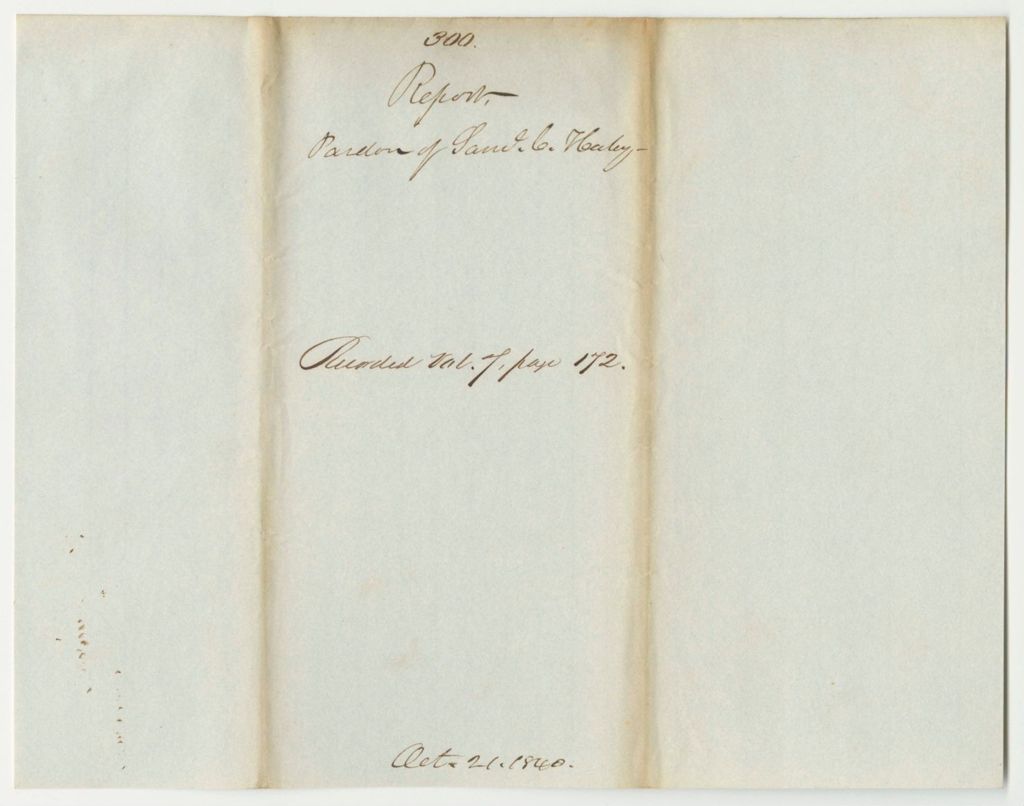 300.
Report,
Pardon of Saml. C. Haley-
Recorded Vol. 7, page 172.
Oct. 21. 1840.